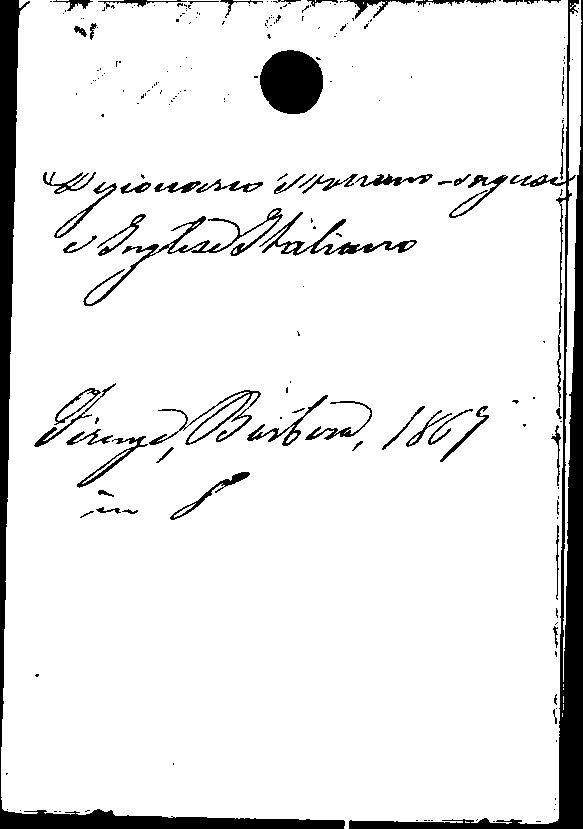 Dizionario Italiano-Inglese
e Inglese Italiano
Firenze, Barbera, 1867
in 8°